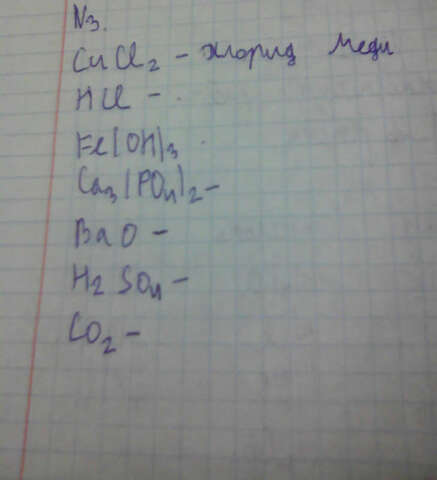 N3.
CuCl2 - хлорид меди
HCl -
Fe(OH)3
Ca3(PO4)2 -
BaO -
H2SO4 -
CO2 -